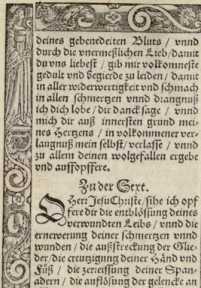 deines gebenedeiten Bluts / vnnd
durch die vnermeßlichen Lieb / damit
du vns liebest / gib mir volkomneste
gedult vnd begierde zu leiden / damit
in aller widerwertigkeit vnd schmach
in allen schmertzen vnnd drangnuß
ich dich lobe / dir danck sage / vnnd
mich dir auß innersten grund mei-
nes Hertzens / in volkommener ver-
laugnuß mein selbst / verlasse / vnnd
zu allem deinen wolgefallen ergebe
vnd auffopffere.
Zu der Sext.
O Herr Jesu Christe, sihe ich opf
fere dir die entblössung deines
verwundten Leibs / vnnd die
ernewerung deiner schmertzen vnnd
wunden / die außstreckung der Glie-
der / die creutzigung deiner Händ vnd
Füß / die zerreissung deiner Span-
adern / die auflösung der gelencke an